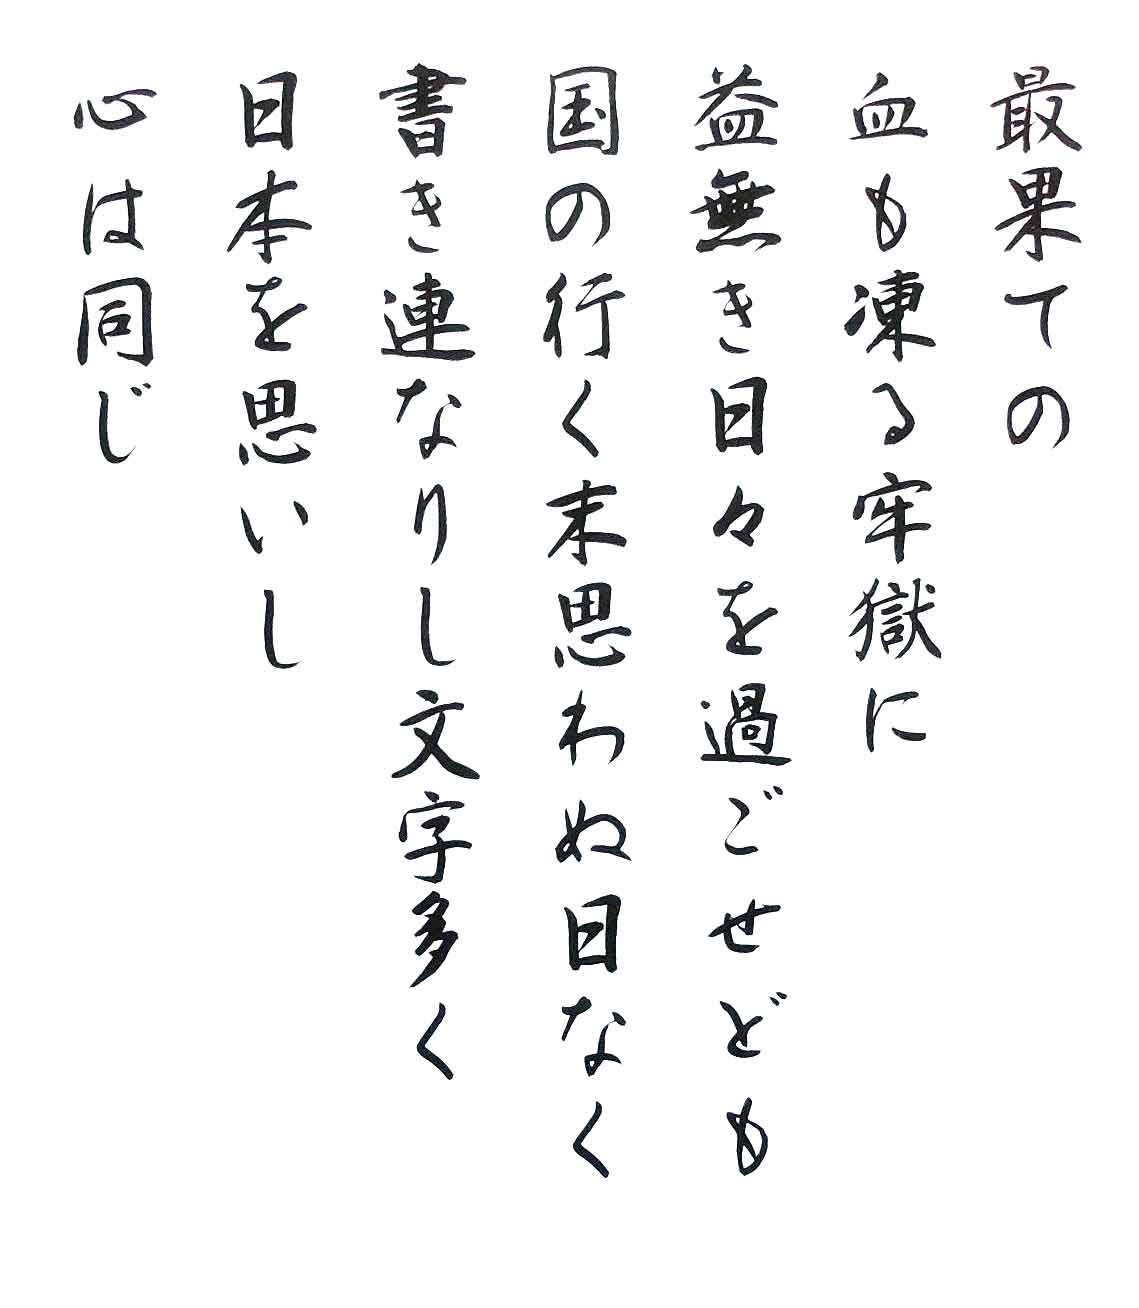 最果ての
血も凍る牢獄に
益無き日々を過ごせども
国の行く末思わぬ日なく
書き連なりし文字多く
日本を思いし
心は同じ